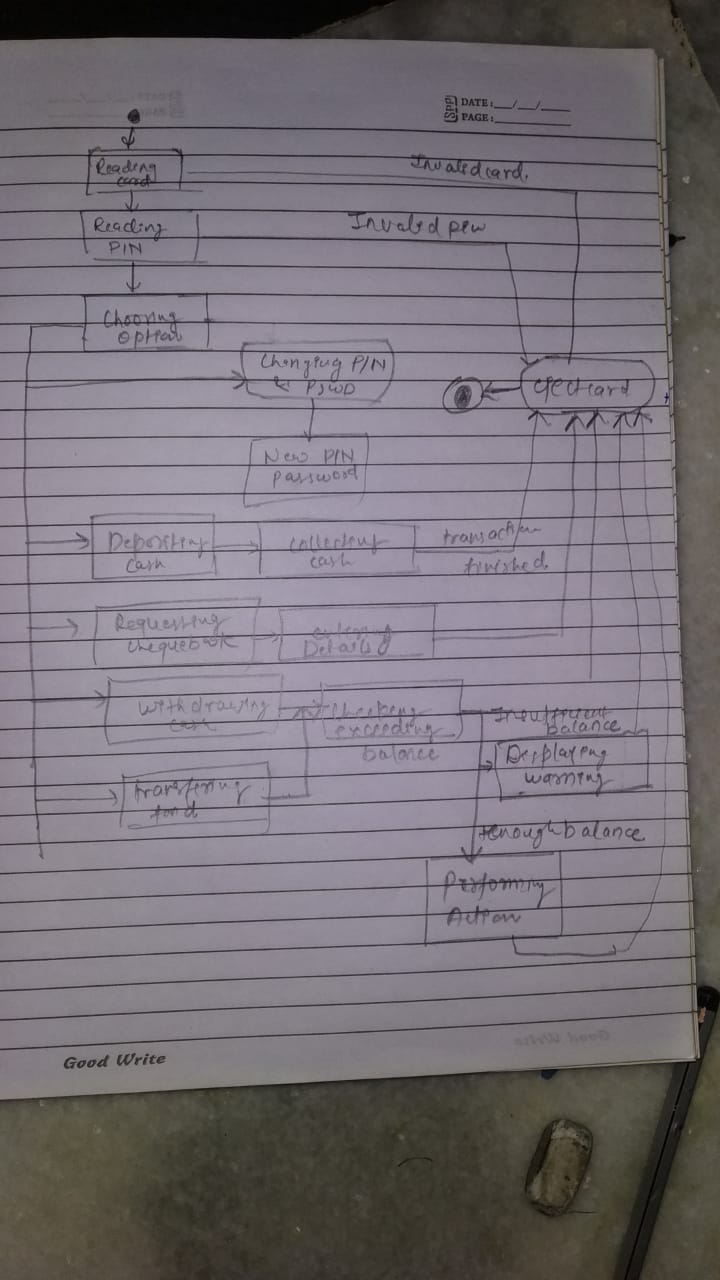 Spp DATE: __/__/____
PAGE: ________
Reading
card
Invalid card.
Reading
PIN
Invalid pin
Choosing
option
Changing PIN
& PSWD
eject card
New PIN
password
Depositing
cash
collecting
cash
transaction
finished.
Requesting
chequebook
entering
Details
withdrawing
cash
checking
exceeding
balance
Insufficient
balance
Displaying
warning
transfering
fond
+enough balance
Performing
Action
Good Write